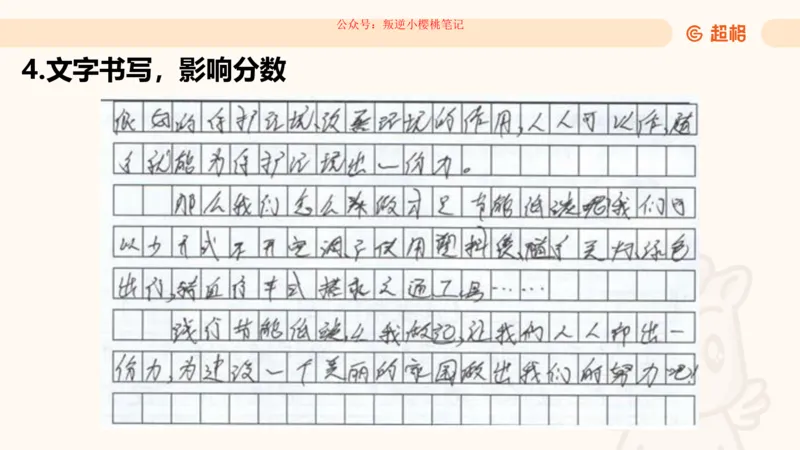 公众号：叛逆小樱桃笔记
超格
4.文字书写，影响分数
很好的保护环境、改善环境的作用，人人可以作，随
手就能为保护环境出一份力。
那么我们怎么样做才是节能低碳呢我们可
以少开或不开空调，少使用塑料袋，随手关灯，绿色
出行，骑自行车或搭乘交通工具……
践行节能低碳，从我做起，让我们人人都出一
份力，为建设一个美丽的家园做出我们的努力吧！